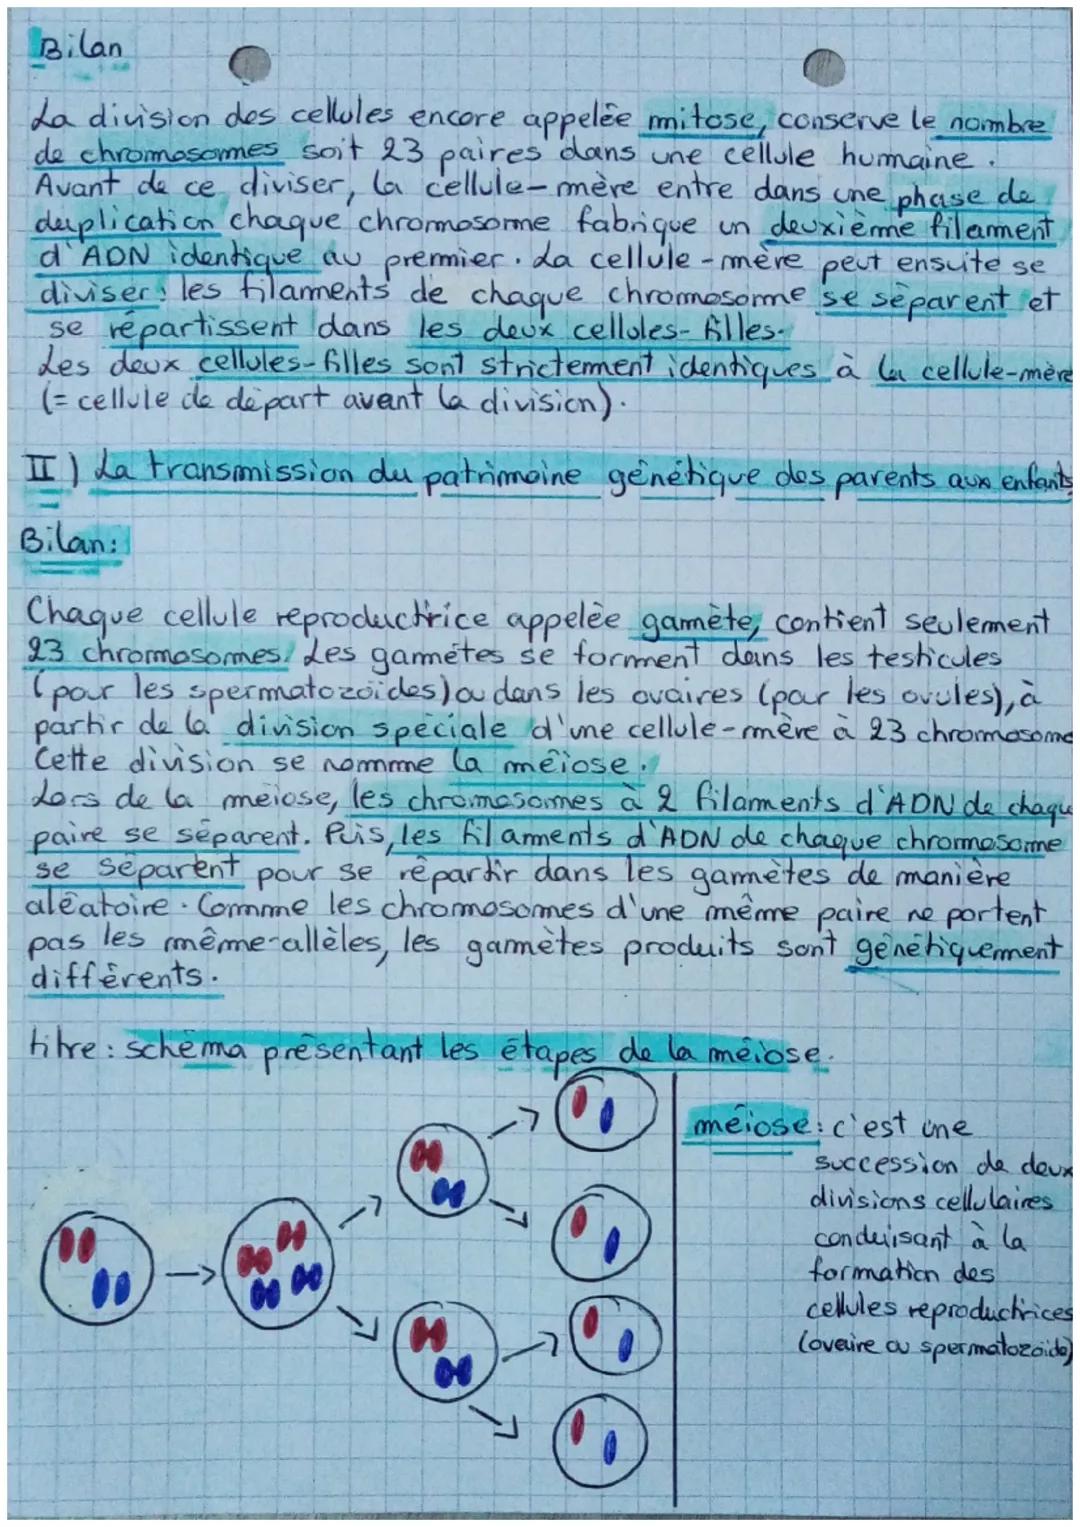 Bilan
La division des cellules encore appelée mitose, conserve le nombre
de chromosomes soit 23 paires dans une cellule humaine.
Avant de ce diviser, la cellule-mère entre dans une phase de
duplication chaque chromosome fabrique un deuxième filament
d'ADN identique au premier. La cellule-mère peut ensuite se
diviser: les filaments de chaque chromosome se séparent et
se répartissent dans les deux cellules-filles.
Les deux cellules-filles sont strictement identiques à la cellule-mère
(= cellule de départ avant la division).
II) La transmission du patrimoine génétique des parents aux enfants
Bilan:
Chaque cellule reproductrice appelée gamète, contient seulement
23 chromosomes. Les gamètes se forment dans les testicules
(pour les spermatozoïdes) ou dans les ovaires (pour les ovules), à
partir de la division spéciale d'une cellule-mère à 23 chromosome
Cette division se nomme la méiose.
Lors de la méiose, les chromosomes à 2 filaments d'ADN de chaque
paire se séparent. Puis, les filaments d'ADN de chaque chromosome
se séparent pour se répartir dans les gamètes de manière
aléatoire. Comme les chromosomes d'une même paire ne portent
pas les même-allèles, les gamètes produits sont génétiquement
différents.
titre: schéma présentant les étapes de la méiose.
méiose: c'est une
succession de deux
divisions cellulaires
conduisant à la
formation des
cellules reproductrices
(ovaire ou spermatozoïde)